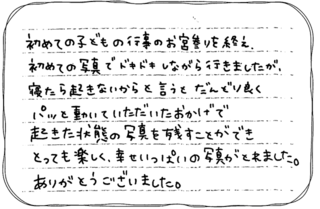 初めての子どもの行事のお宮参りを終え、
初めての写真でドキドキしながら行きましたが、
寝たら起きないからと言うと だんどり良く
パッと動いていただいたおかげで
起きた状態の写真を残すことができ
とっても楽しく、幸せいっぱいの写真がとれました。
ありがとうございました。